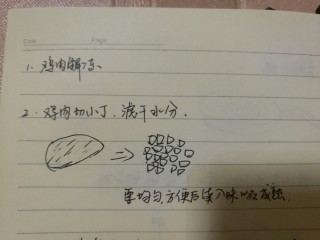 Date
Page
1. 鸡肉解冻
2. 鸡肉切小丁, 滤干水分.
要均匀, 方便后续入味以及成熟.